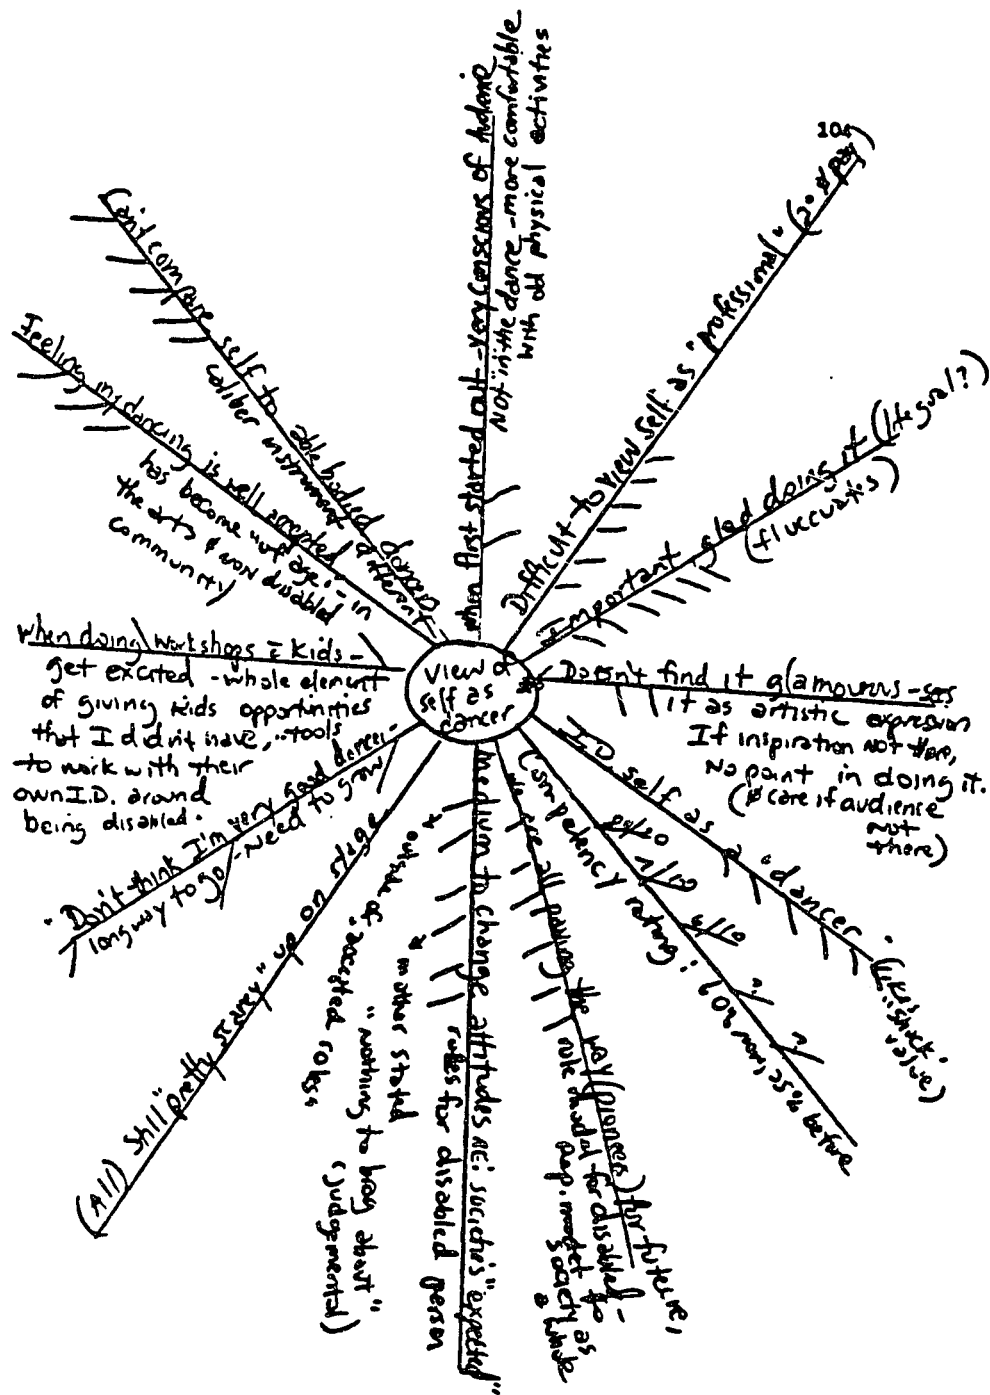 View of
self as
dancer
when first started out - very conscious of
Not in the dance - more comfortable
with old physical activities
104
Difficult to view self as "professional" (20 $ pay)
Important, glad doing it (
(fluccuates)
Doesn't find it glamourous - sees
it as artistic expression
If inspiration not there,
No point in doing it.
care if audience
not
there)
I.D. self as a "dancer"
(likes
"shock"
value)
Competency rating: 60% now, 25% before
We are all paving the way (pioneers) for future,
role model for disabled -
society as
a whole
Medium to change attitudes RE: societie's "expected"
rules for disabled person
* mother stated
"nothing to brag about"
(judgemental)
* outside of "accepted roles"
(All) Still "pretty scarey" up on stage
"Don't think I'm very good dancer
long way to go - Need to grow
When doing workshops c̄ kids -
get excited - whole element
of giving kids opportunities
that I didn't have, "tools
to work with their
own I.D. around
being disabled.
Feeling indancing is well accepted -
has become "of age" - in
the arts & non disabled
community
Can't compare self to able bodied dancers
caliber instrument different